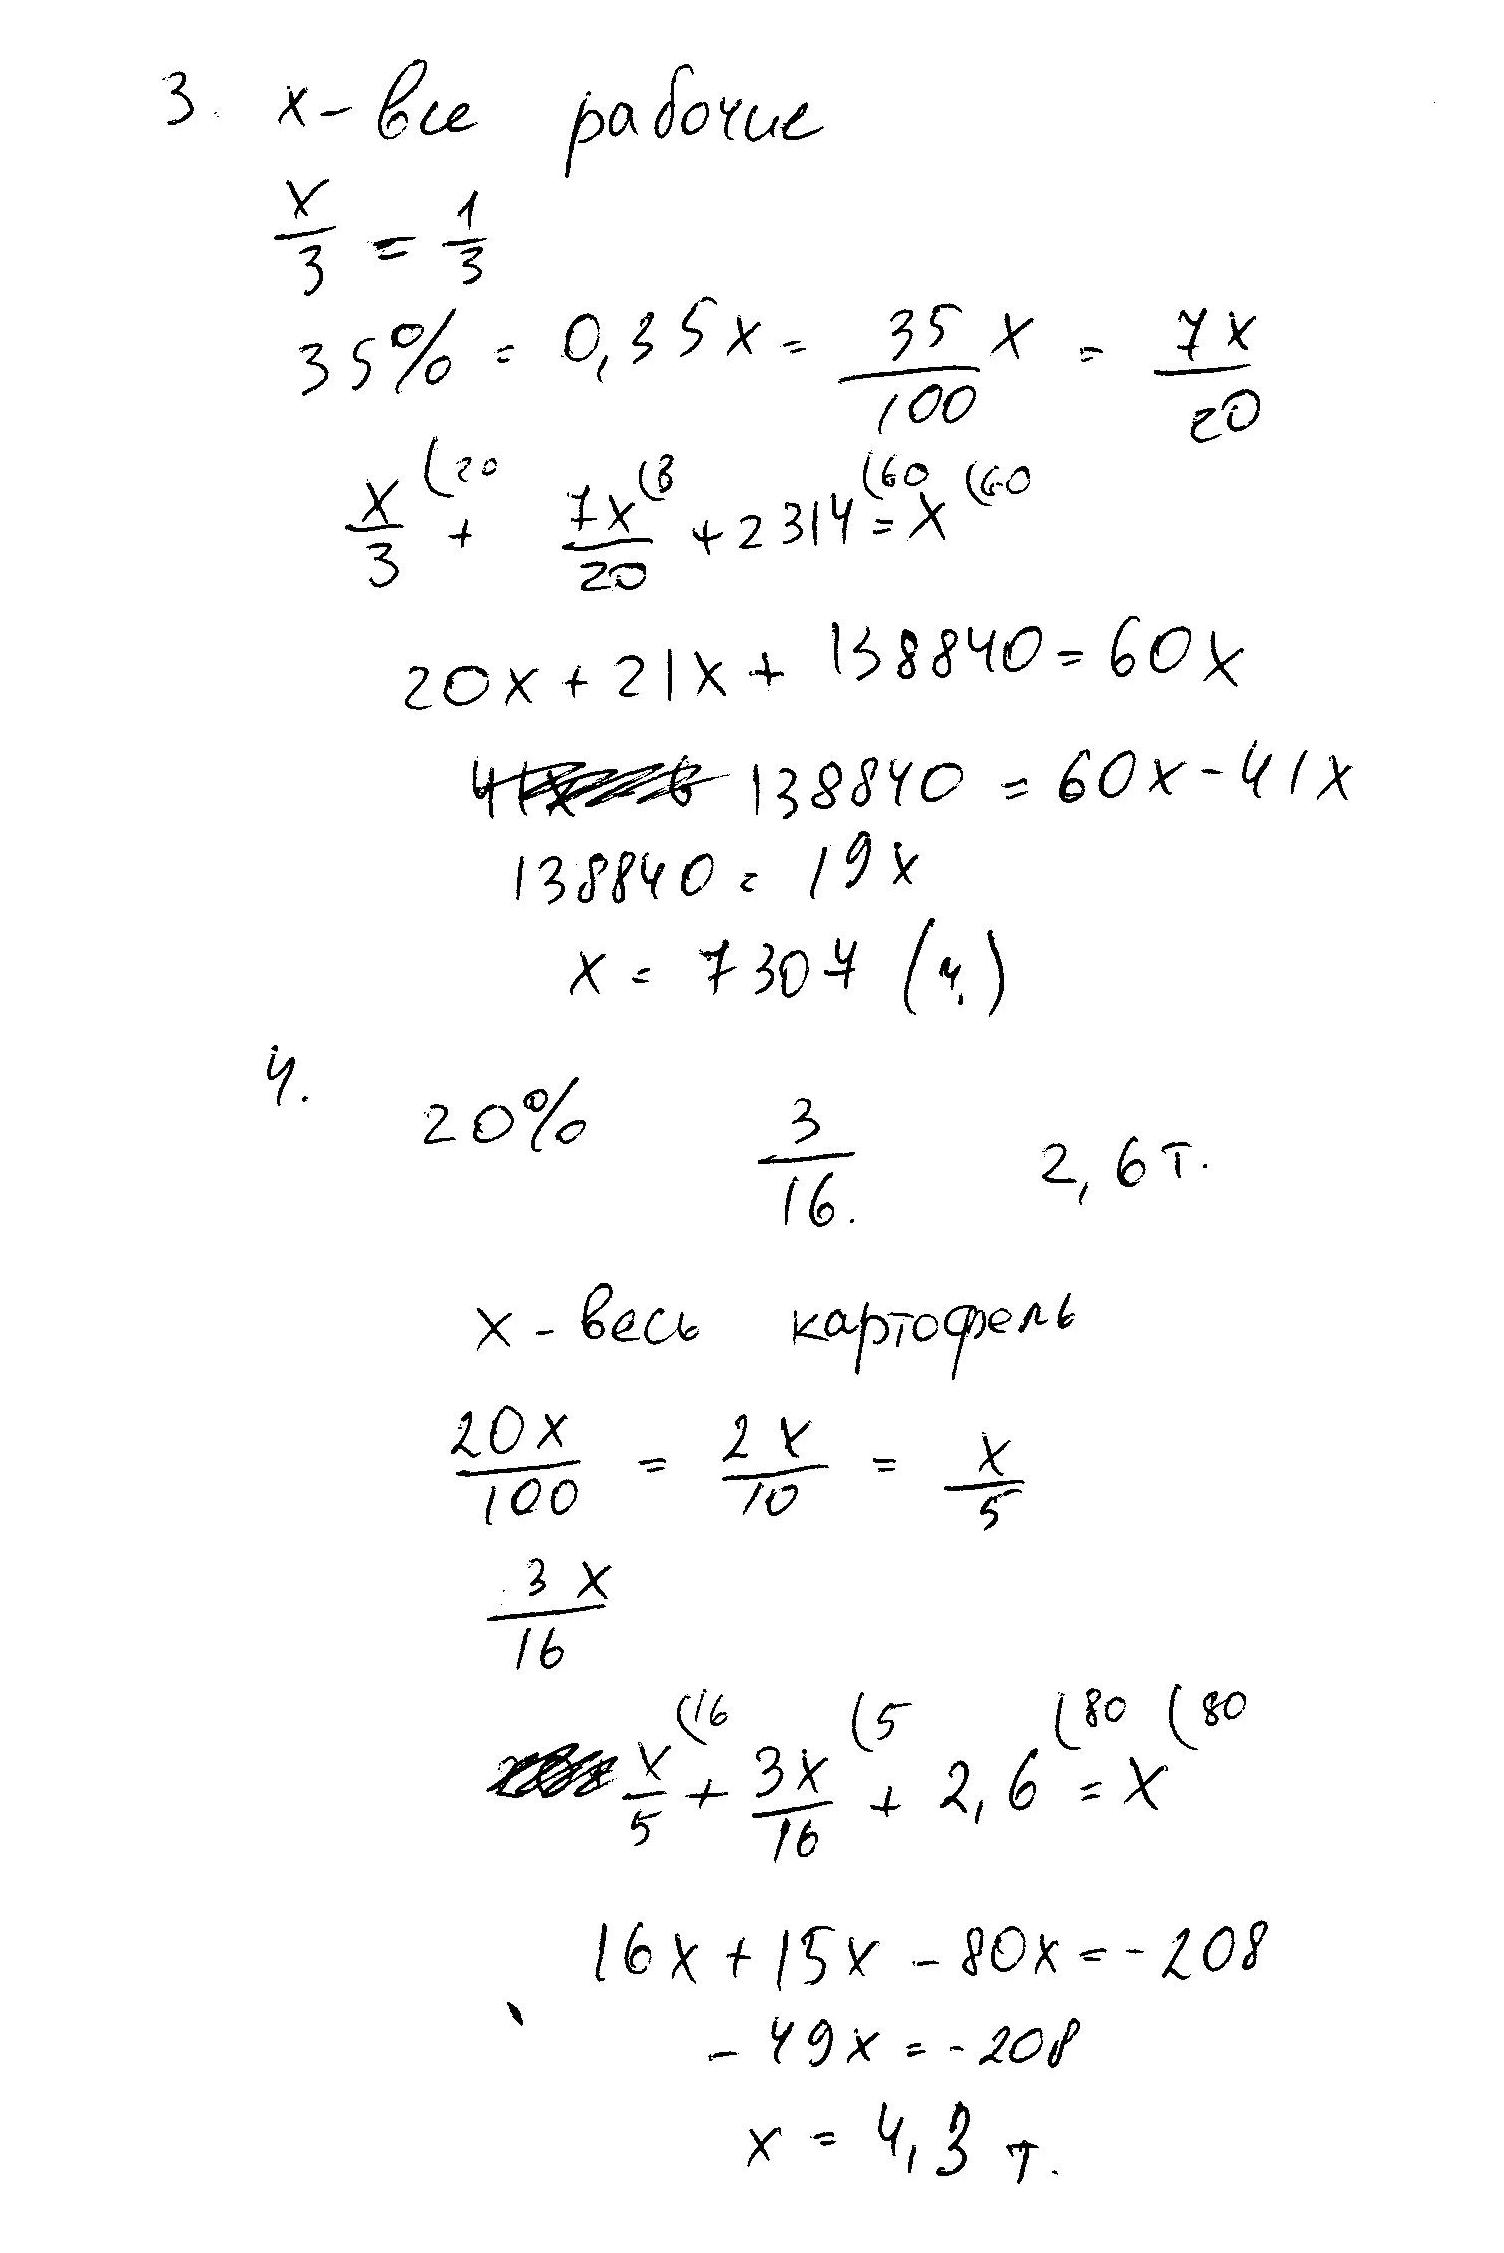 3. x - все рабочие
x/3 = 1/3
35% = 0,35x = 35/100 x = 7x/20
x/3 (20 + 7x/20 (3 + 2314 (60 = x (60
20x + 21x + 138840 = 60x
138840 = 60x - 41x
138840 = 19x
x = 7307 (ч.)
4.
20% 3/16. 2,6 т.
x - весь картофель
20x/100 = 2x/10 = x/5
3x/16
x/5 (16 + 3x/16 (5 + 2,6 (80 = x (80
16x + 15x - 80x = - 208
- 49x = - 208
x = 4,3 т.